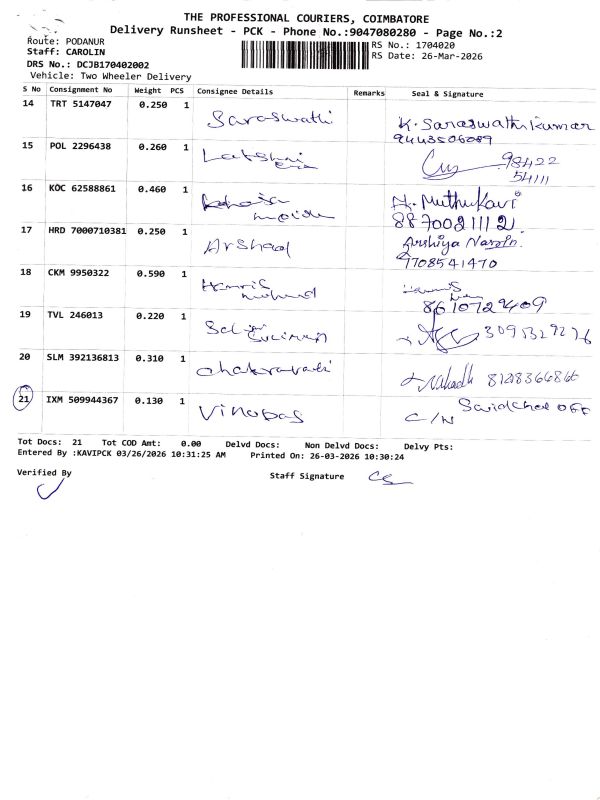 THE PROFESSIONAL COURIERS, COIMBATORE
Delivery Runsheet - PCK - Phone No.:9047080280 - Page No.:2
Route: PODANUR
Staff: CAROLIN
DRS No.: DCJB170402002
Vehicle: Two Wheeler Delivery
RS No.: 1704020
RS Date: 26-Mar-2026
S No Consignment No Weight PCS Consignee Details Remarks Seal & Signature
14 TRT 5147047 0.250 1 Saraswathi K. Saraswathi kumar
9443506089
15 POL 2296438 0.260 1 98422
54111
16 KOC 62588861 0.460 1 A. Muthukavi
8870021112
17 HRD 7000710381 0.250 1 Arshad Arshiya
9708541470
18 CKM 9950322 0.590 1 Harris
8610729409
19 TVL 246013 0.220 1
20 SLM 392136813 0.310 1 Chakravarthi
21 IXM 509944367 0.130 1 Vinobas
C/N
Tot Docs: 21 Tot COD Amt: 0.00 Delvd Docs: Non Delvd Docs: Delvy Pts:
Entered By :KAVIPCK 03/26/2026 10:31:25 AM Printed On: 26-03-2026 10:30:24
Verified By Staff Signature